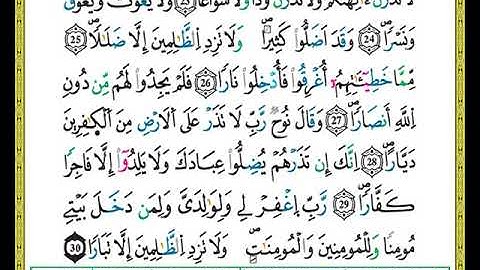 لَا تَذَرُنَّ ءَالِهَتَكُمْ وَلَا تَذَرُنَّ وُدّاً وَلَا سُوَاعاً 23 وَلَا يَغُوثَ وَيَعُوقَ
وَنَسْراًۖ 24 وَقَدَ اَضَلُّواْ كَثِيراًۖ وَلَا تَزِدِ الظَّٰلِمِينَ إِلَّا ضَلَٰلاًۖ 25
مِّمَّا خَطِيٓـَٰٔتِهِمُۥٓ أُغْرِقُواْ فَأُدْخِلُواْ نَاراًۖ 26 فَلَمْ يَجِدُواْ لَهُم مِّن دُونِ
اِللَّهِ أَنصَاراًۖ 27 وَقَالَ نُوحٞ رَّبِّ لَا تَذَرْ عَلَى اَلَارْضِ مِنَ اَلْكٰ۪فِرِينَ
دَيَّاراًۖ 28 اِنَّكَ إِن تَذَرْهُمْ يُضِلُّواْ عِبَادَكَ وَلَا يَلِدُوٓاْ إِلَّا فَاجِراٗ
كَفَّاراًۖ 29 رَّبِّ اِغْفِرْ لِي وَلِوَٰلِدَيَّ وَلِمَن دَخَلَ بَيْتِي
مُومِناٗ وَلِلْمُومِنِينَ وَالْمُومِنَٰتِۖ وَلَا تَزِدِ الظَّٰلِمِينَ إِلَّا تَبَاراًۖ 30